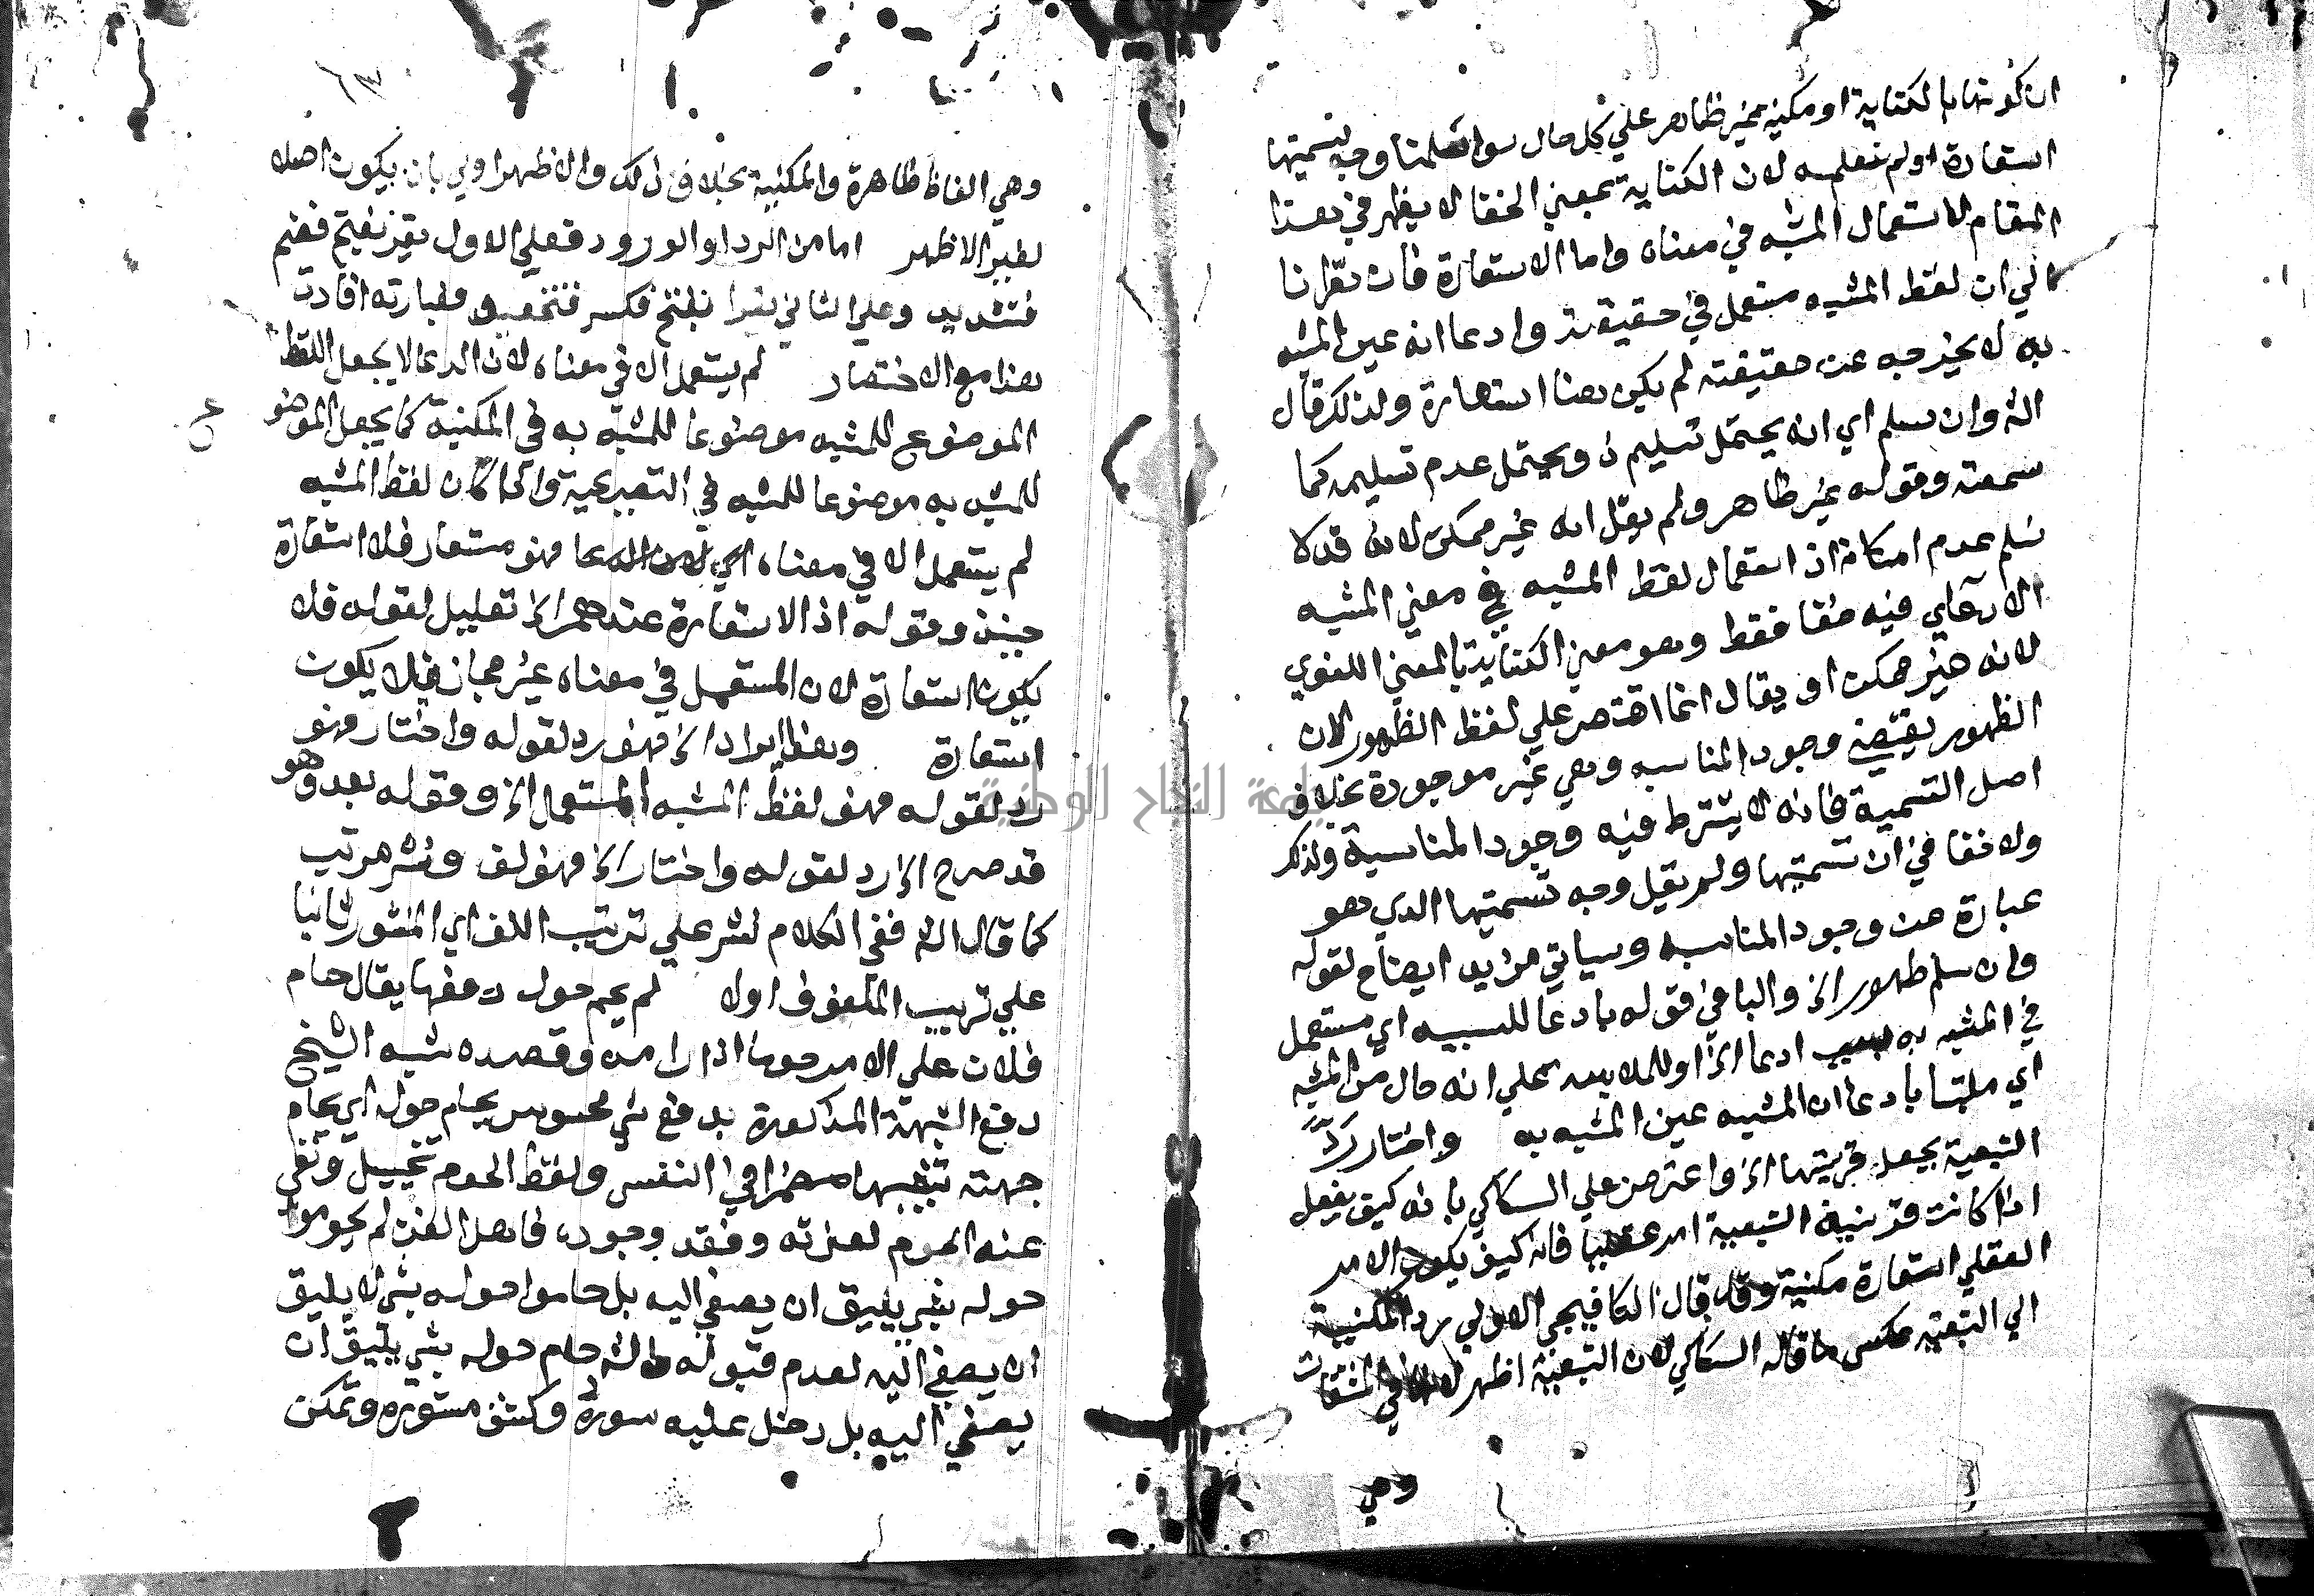 ان كونها بالكناية او مكنية غير ظاهر علي كل حال سوا سلمنا وجه تسميتها
استعارة اولم نعلمه لان الكناية بمعني الخفا لا يظهر في هذا
المقام لاستعمال المشبه في معناه واما الاستعارة فان نظرنا
الي ان لفظ المشبه مستعمل في حقيقته وادعا انه عين المشبه
به لا يخرجه عن حقيقته لم يكن هنا استعارة ولذلك قال
الش وان سلم اي انه يحتمل تسليم ذ ويحتمل عدم تسليمه كما
سمعته وقوله غير ظاهر ولم يقل انه غير ممكن لانه قد لا
نسلم عدم امكانه اذ استعمال لفظ المشبه في معني المشبه
الادعاي فيه خفا فقط وهو معني الكناية بالمعني اللغوي
لانه غير ممكن او يقال انما اقتصر علي لفظ الظهور لان
الظهور يقتضي وجود المناسبه وهي غير موجودة بخلاف
اصل التسمية فانه لا يشترط فيه وجود المناسبة ولذلك
ولا خفا في ان تسميتها ولم يقل وجه تسميتها الذي هو
عبارة عن وجود المناسبه وسياتي مزيد ايضاح لقوله
وان سلم ظهور الخ والبا في قوله بادعا للسببيه اي مستعمل
في المشبه به بسبب ادعا الخ او للملابسه علي انه حال من المشبه
اي ملتبسا بادعا ان المشبه عين المشبه به واختار رد
التبعية بجعل قرينتها الخ واعترض علي السكاكي بانه كيف يفعل
اذا كانت قرينة التبعية امر عقليا فانه كيف يكون الامر
العقلي استعارة مكنية وقد قال الكافيجي الاولي رد المكنية
الي التبعية عكس ما قاله السكاكي لان التبعية اظهر لانها في المشتقات
وهي
٦٣
وهي الفاظ ظاهرة والمكنية بخلاف ذلك والاظهر اولي بان يكون اصلا
لغير الاظهر اما من الرد او الورود فعلي الاول يقر بفتح فضم
فتشديد وعلي الثاني يقرا بفتح فكسر فتخفيف وعبارته افادت
هذا مع الاختصار لم يستعمل الا في معناه لان الدعا لا يجعل اللفظ
الموضوع للمشبه موضوعا للمشبه به في المكنية كما يجعل الموضو
ع
للمشبه به موضوعا للمشبه في التصريحية واذا كان لفظ المشبه
لم يستعمل الا في معناه اي فهو مستعار فلا استعارة
حينئذ وقوله اذ الاستعارة عندهم الخ تعليل لقوله فلا
يكون استعارة لان المستعمل في معناه غير مجاز فلا يكون
استعارة وهذا ايراد الخ فهو رد لقوله واختار فهو
رد لقوله فهو لفظ المشبه المستعمل الخ وقوله بعد وهو
قد صرح الخ رد لقوله واختار الخ فهو لف ونشر مرتب
كما قال الش ففي الكلام نشر علي ترتيب اللف اي المنشور ثانيا
علي ترتيب الملفوف اولا لم يحم حول دفعها يقال حام
فلان علي الامر حوما اذا رامه وقصده شبه الشيخ
دفع الشبهة المذكورة بدفع شي محسوس يحام حوله اي يحام
جهته تشبيها مضمرا في النفس ولفظ الحوم تخييل ونفي
عنه الحوم لعزته وفقد وجوده فاهل الفن لم يحوموا
حوله بشي يليق ان يصغي اليه بل حاموا حوله بشي لا يليق
ان يصغي اليه لعدم قبوله والش حام حوله بشي يليق ان
يصغي اليه بل دخل عليه سوره وكشف مستوره وتمكن
جامعة النجاح الوطنية